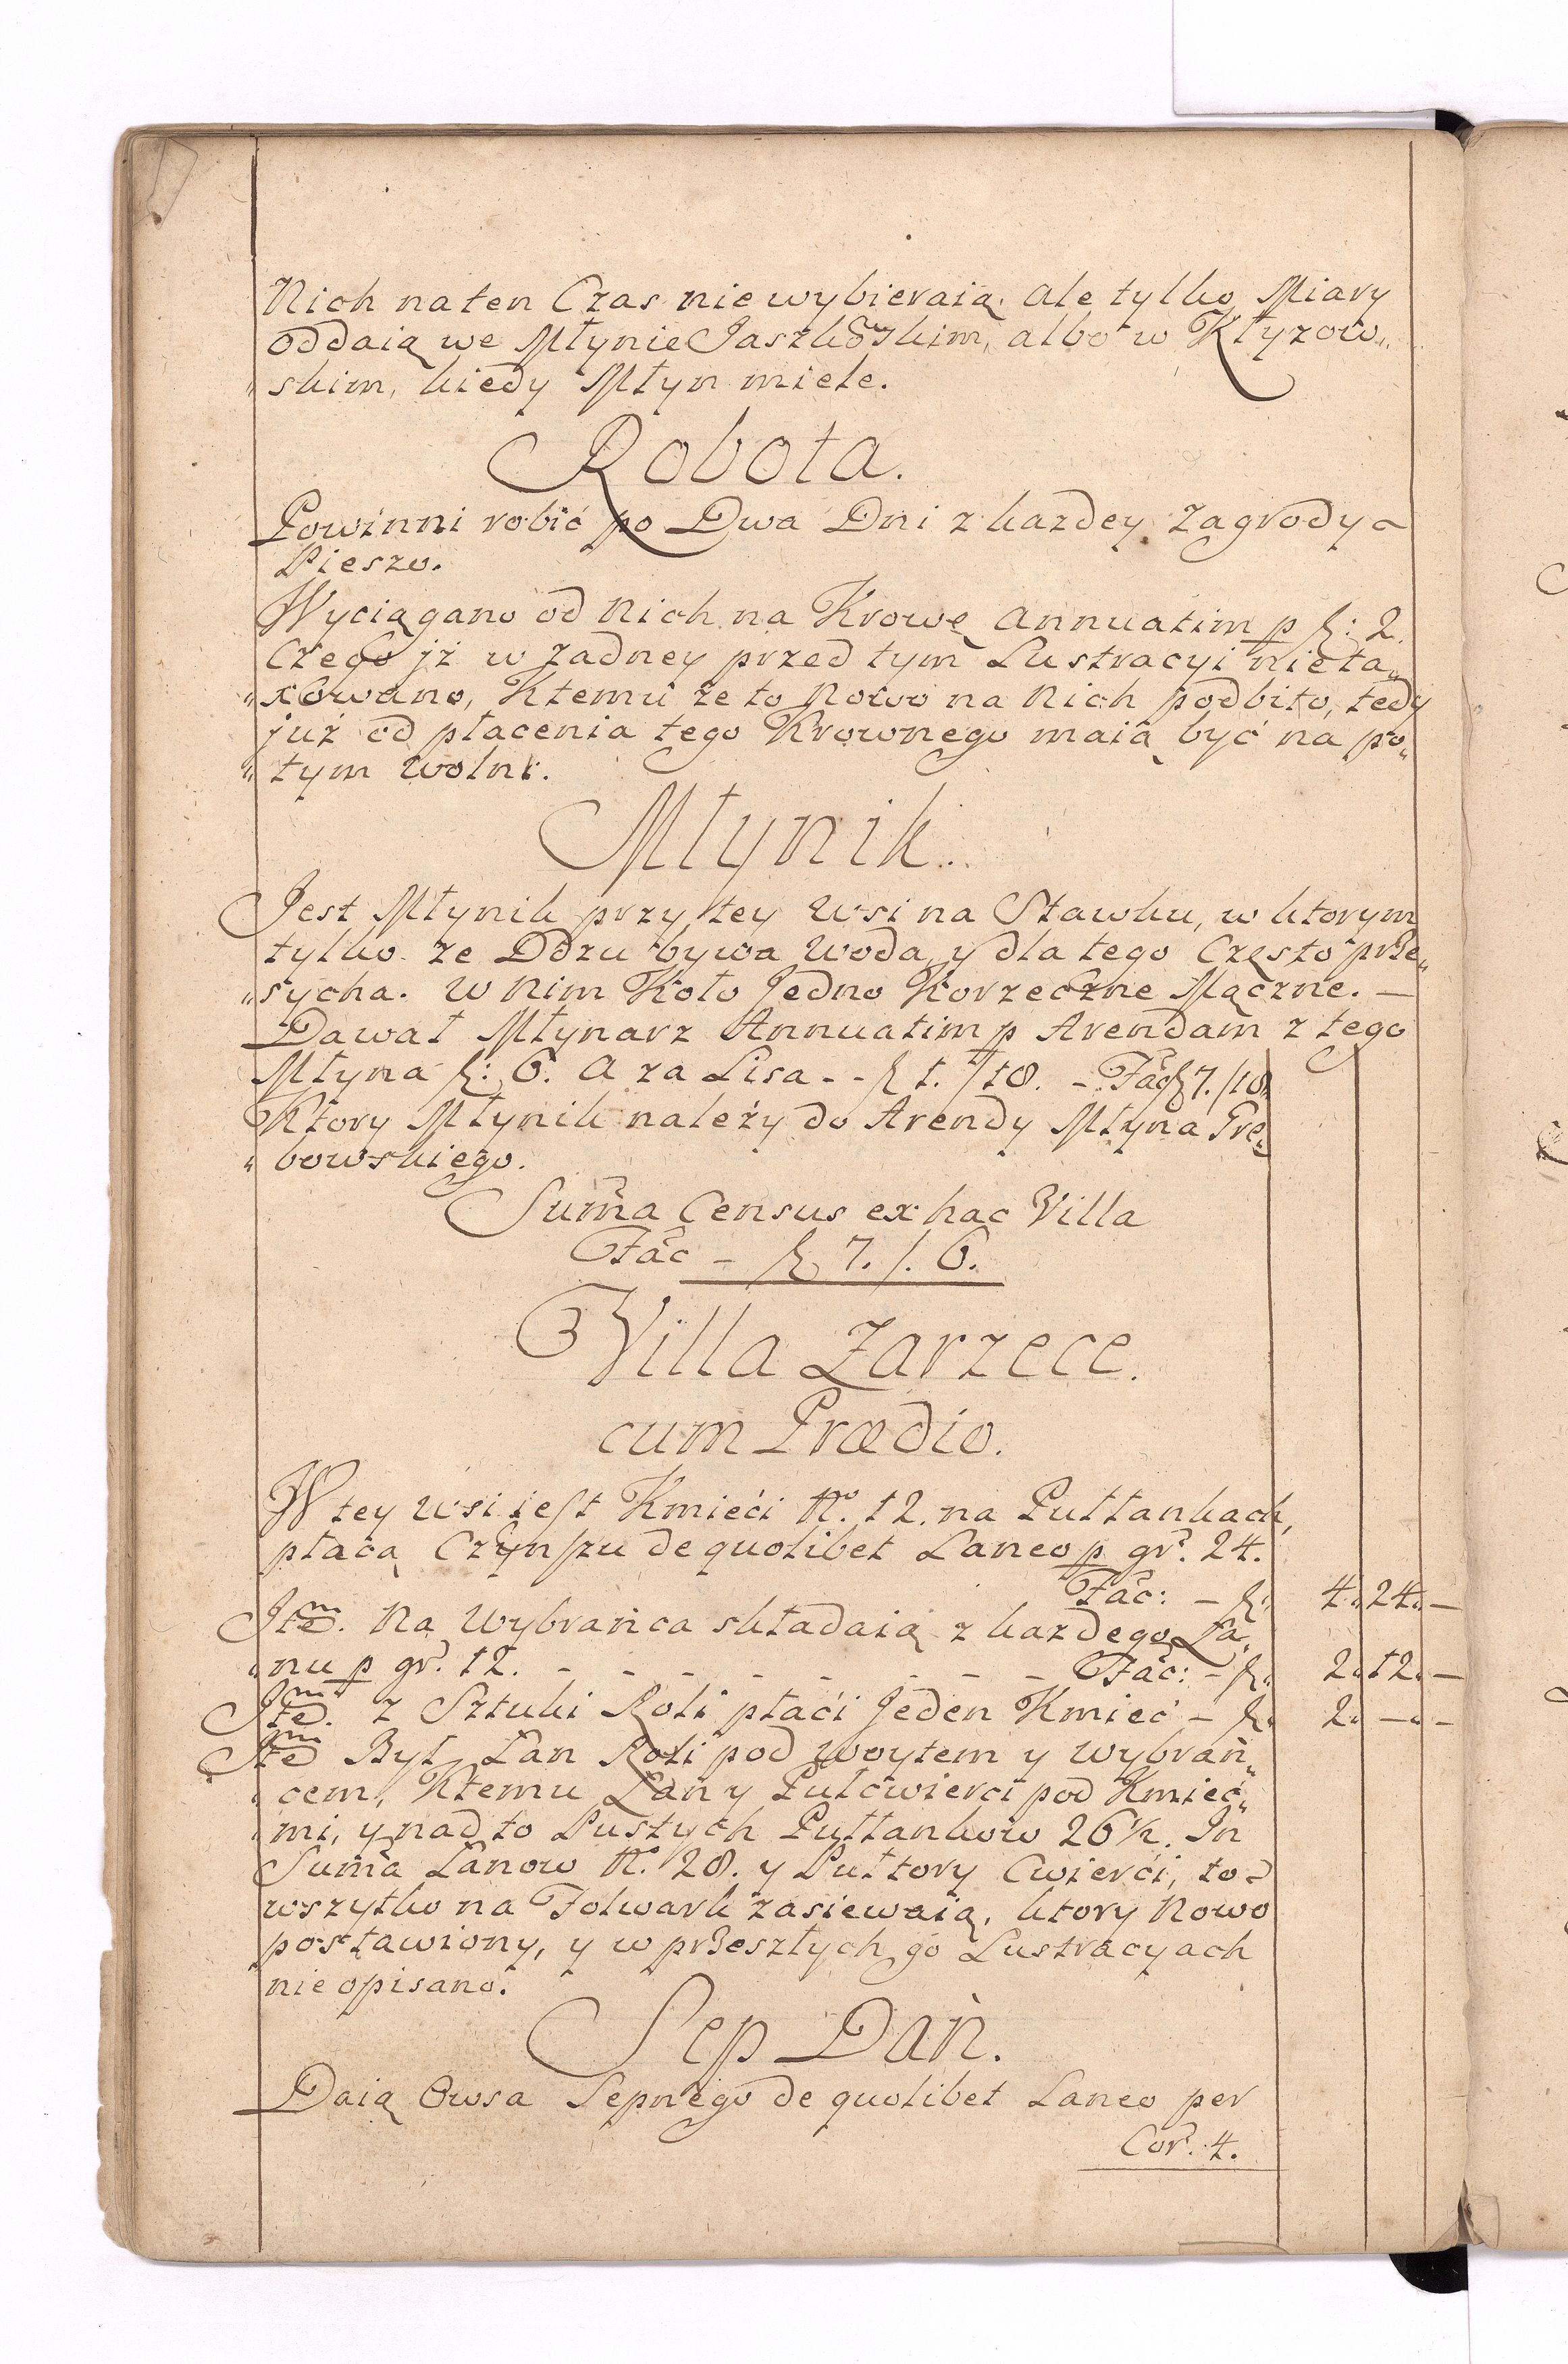 Nich na ten Czas nie wybieraią. ale tylko Miary
oddaią we Młynie Jaszkoskim, albo w Kłyzow„
„skim, kiedy Młyn miele.
Robota.
Powinni robić po Dwa Dni z kazdey Zagrody
Pieszo.
Wyciągano od Nich na Krowę annuatim p f: 2.
Czego jż w zadney przed tym Lustracyi nie ta„
„xowano, Ktemu ze to Nowo na Nich podbito, tedy
już od płacenia tego Krownego maią być na po„
„tym wolni.
Młynik.
Jest Młynik przy tey wsi na Stawku, w ktorym
tylko ze Ddzu bywa woda, y dla tego Często prze„
„sycha. W nim Koło Jedno Korzeczne Mączne. —
Dawał Młynarz Annuatim p Arendam z tego
Młyna f: 6. A za Lisa - - f 1. /18. - Fac f 7. /18.
Ktory Młynik należy do Arendy Młyna Gre„
„bowskiego.
Suma Census ex hac Villa
Fac — f 7. /. 6.
Villa Zarzece.
cum Prædio.
W tey wsi iest Kmieći No. 12. na Pułłankach,
płacą Czynszu de quolibet Laneo p gr. 24.
Fac: — f„ 4„ 24„ —
Item. Na Wybrańca składaią z kazdego Ła„
„nu p gr. 12. - - - - - - - - - Fac: — f„ 2„ 12„ —
Item. z Sztuki Roli płaći Jeden Kmieć — f„ 2„ —„ -
Item Był Łan Roli pod woytem y wybrań„
„cem, Ktemu Łan y Pułcwierci pod Kmieć„
„mi, y nad to Pustych Pułłankow 26½. In
Suma Łanow No. 28. y Pułtory Cwierći, to
wszytko na Folwark zasiewaią, ktory Nowo
postawiony, y w przeszłych go Lustracyach
nie opisano.
Sep Dań.
Daią Owsa Sepnego de quolibet Laneo per
Cor. 4.